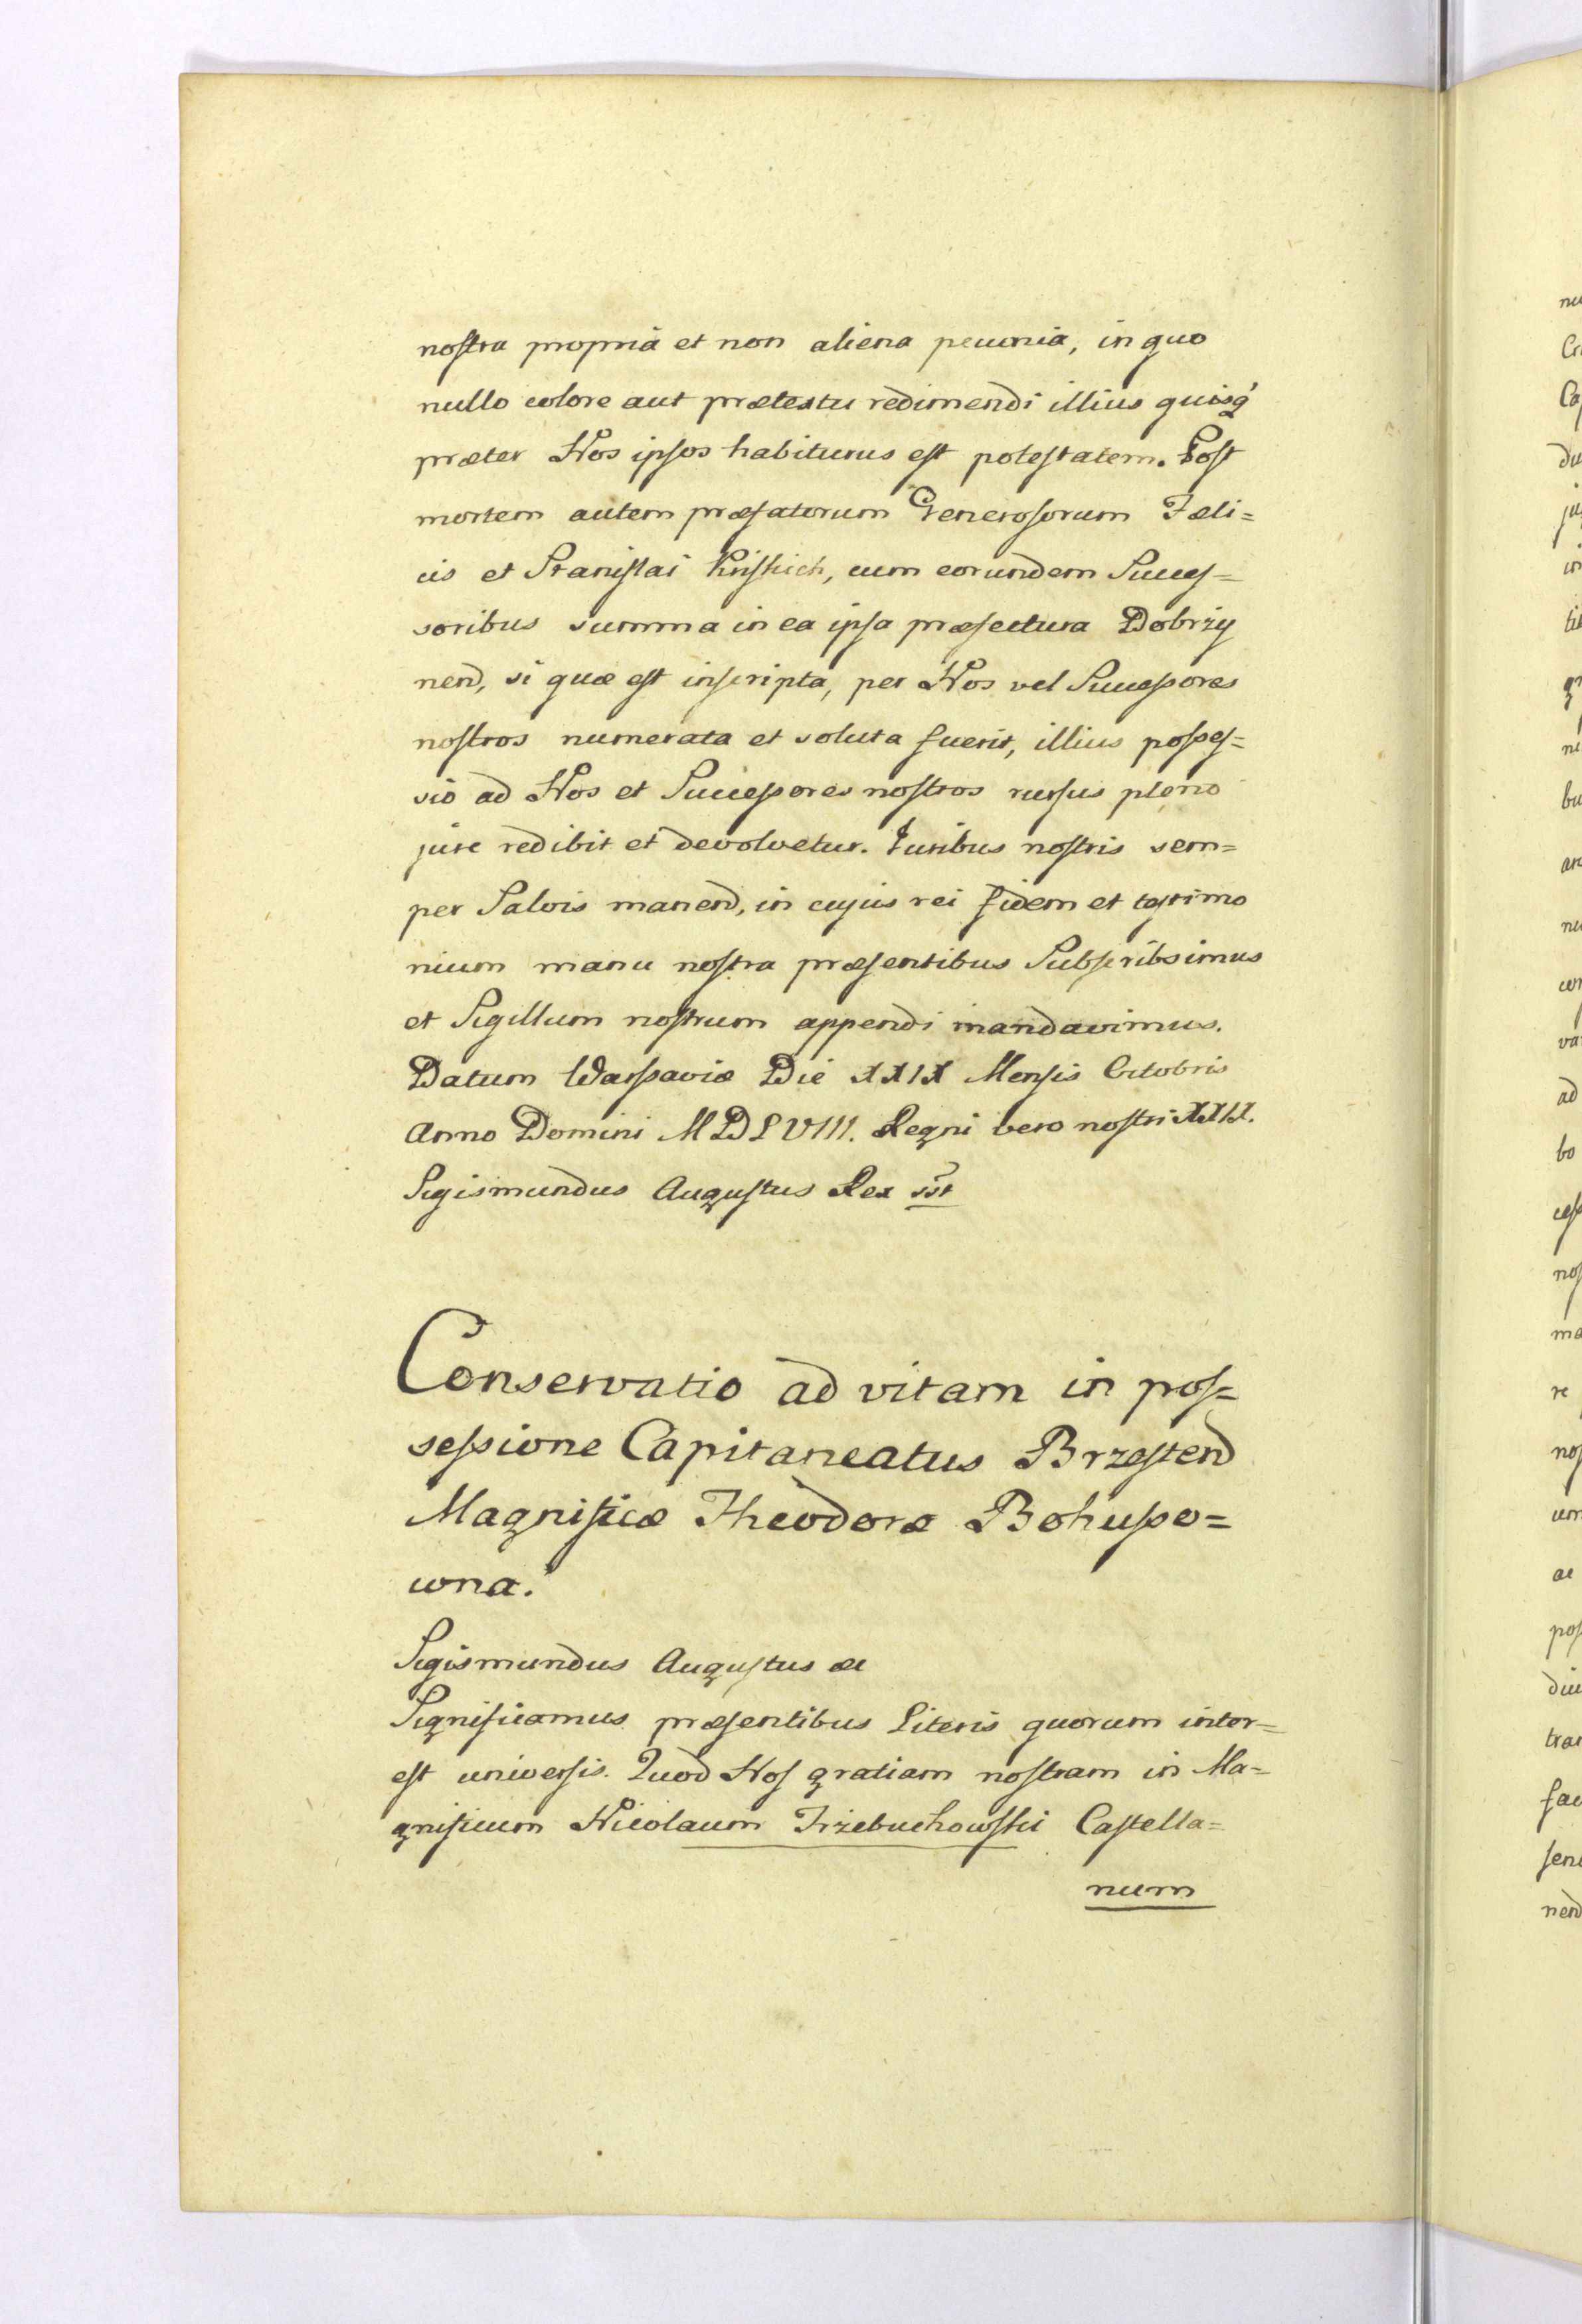 nostra propriâ et non aliena pecunia, in quo
nullo colore aut prætextu redimendi illius quisq'
præter Nos ipsos habiturus est potestatem. Post
mortem autem præfatorum Generosorum Fæli=
cis et Stanislai cum eorundem Succes=
soribus summa in ea ipsa præfectura Dobrzy
nen͠, si quæ est inscripta, per Nos vel Successores
nostros numerata et soluta fuerit, illius posses=
sio ad Nos et Successores nostros rursus pleno
jure redibit et devolvetur. Juribus nostris sem=
per Salvis manen͠, in cujus rei fidem et testimo
nium manu nostra præsentibus Subscribsimus
et Sigillum nostrum appendi mandavimus.
Datum Warsaviæ Die XXIX Mensis Octobris
Anno Domini MDLVIII. Regni vero nostri XXIX.
Sigismundus Augustus Rex sst
Conservatio ad vitam in pos=
sessione Capitaneatus Brzesten͠
Magnificæ Theodoræ Bohusso=
wna.
Sigismundus Augustus &c
Significamus præsentibus Literis quorum inter=
est universis. Quod Nos gratiam nostram in Ma=
gnificum Nicolaum Trzebuchowski Castella=
num